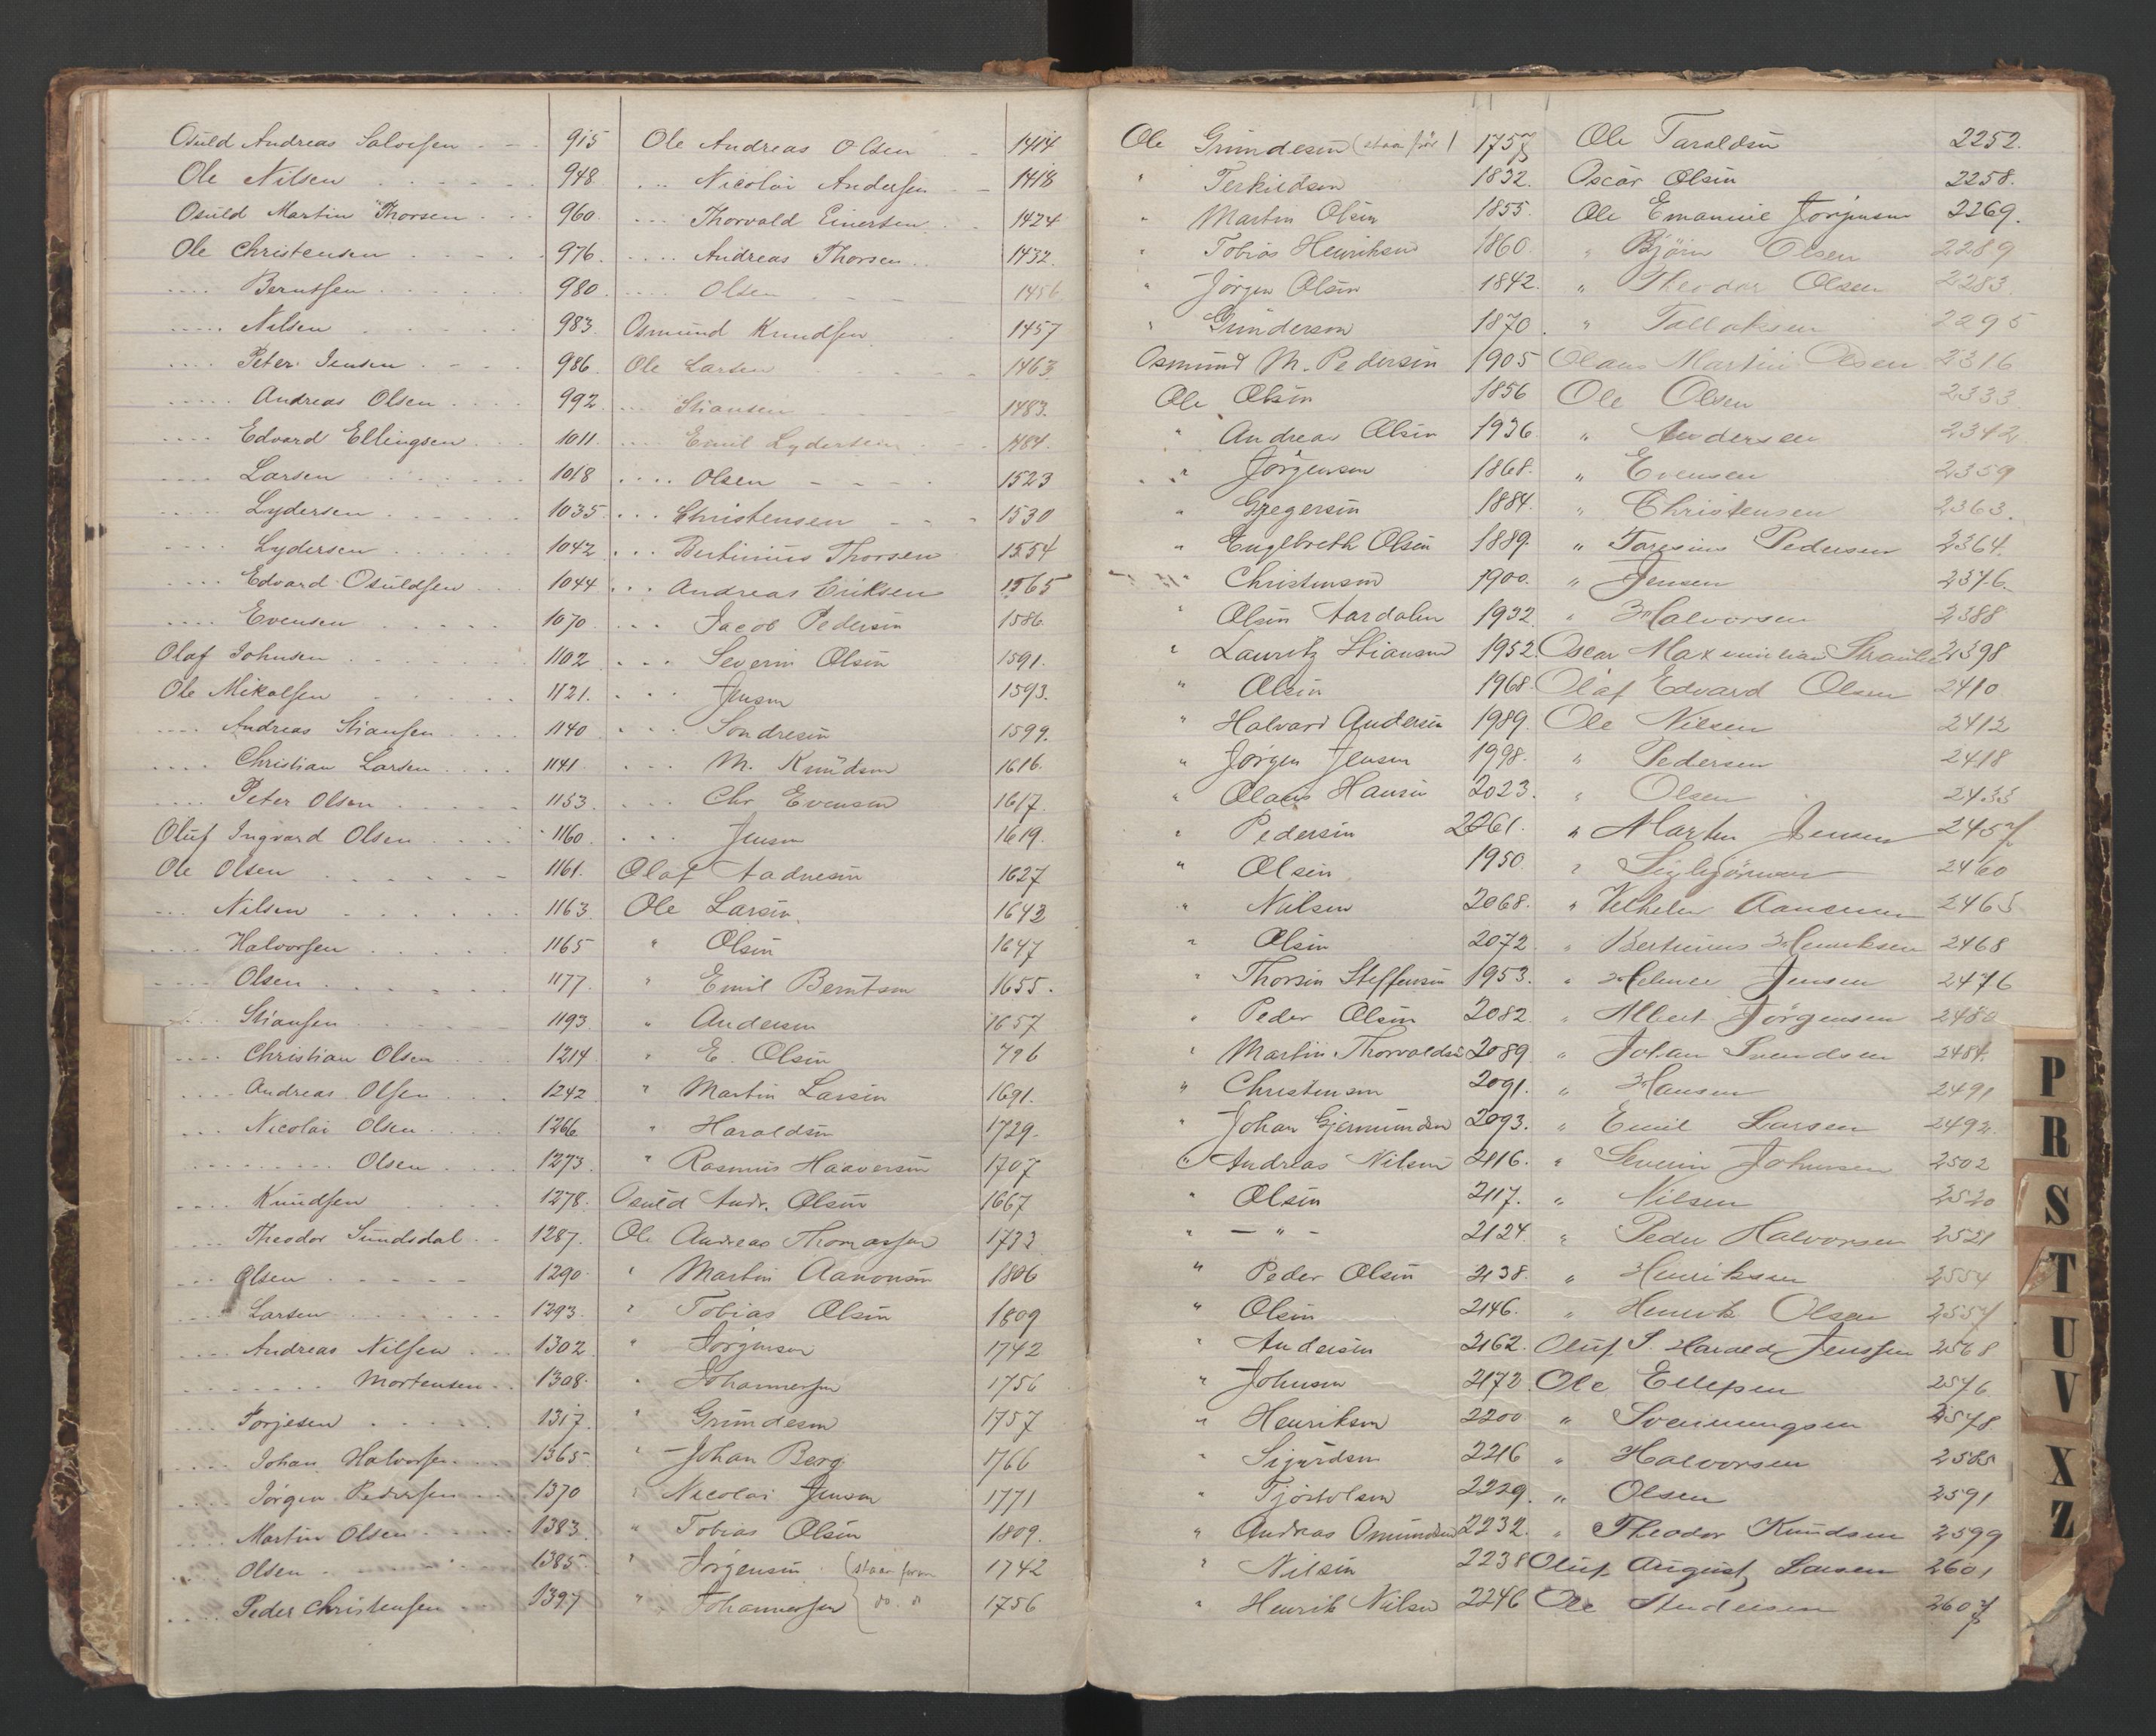 Osuld Andreas Salvesen - - 915
Ole Nilsen . . - - - 948.
Osuld Martin Thorsen . . . 960.
Ole Christensen . . . . . 976.
.... Berntsen . . . . . . 980.
..... Nilsen . . . . . . 983.
.... Peter Jensen . . - - 986.
..... Andreas Olsen . . . . 992.
.... Edvard Ellingsen . . . 1011.
.... Larsen . . . . . . 1018
.... Lydersen . . . . . . 1035.
.... Lydersen . . . . . . 1042.
.... Edvard Osuldsen . . . 1044
.... Evensen . . . . . 1070.
Olaf Johnsen . . . . . . 1102
Ole Mikalsen . . . . . 1121.
.... Andreas Stiansen . . . . 1140
.... Christian Larsen . . . . 1141.
.... Peter Olsen . . . . . 1153.
Oluf Ingvard Olsen . . . . 1160.
Ole Olsen . . . . . . 1161.
... Nilsen . . . . . . 1163.
.... Halvorsen . . . . . 1165
.... Olsen . . . . . . 1177.
.... Stiansen . . . . . 1193
.... Christian Olsen . . . 1214
.... Andreas Olsen . . . . 1242
... Nicolai Olsen . . . . 1266.
......... Olsen . . . . 1273.
.... Knudsen . . . . 1278.
.... Theodor Sundsdal . . 1287.
... Olsen . . - - - 1290.
.... Larsen . . . . . . 1293.
.... Andreas Nilsen . . . 1302.
........ Mortensen . . 1308.
Torjesen . . . . . 1317.
.... Johan Halvorsen . . . 1365.
.... Jörgen Pedersen . . . 1370
.... Martin Olsen . . . . 1383.
.... Olsen . . . . . 1385.
.... Peder Christensen . . 1397
Ole Andreas Olsen . . - 1414
. .. Nicolai Andersen - - 1418
... Thorvald Einersen . . 1424
.... Andreas Thorsen . . 1432.
.... Olsen . . - - 1456
Osmund Knudsen . . . 1457
Ole Larsen . . . . . 1463
... Stiansen . . . . 1483.
.... Emil Lydersen . . - 1484.
.... Olsen - - - . 1523
... Christensen - - . 1530
... Bertinius Thorsen 1554
... Andreas Eriksen 1565
... Jacob Pedersen 1586.
... Severin Olsen 1591.
. . . Jensen 1593.
. . . Sondresen 1599.
. . . M. Knudsen 1616.
. . . Chr Evensen 1617.
. . Jensen 1619.
Olaf Aadnesen 1627
Ole Larsen. 1643
" Olsen 1647
" Emil Berntsen 1655.
" Andersen 1657
" E. Olsen 796
" Martin Larsen 1691.
" Haraldsen 1729.
" Rasmus Haaversen 1707
Osuld Andr. Olsen 1667
Ole Andreas Thomassen 1733
" Martin Aanonsen 1806
" Tobias Olsen 1809
" Jörgensen 1742
" Johannessen 1756
" Grundesen 1757
" Johan Berg 1766
" Nicolai Jensen 1771
" Tobias Olsen 1809.
" Jörgensen (staar foran 1742
" Johannessen do. " 1756
Ole Grundesen (staar før) 1757
" Terkildsen 1832.
" Martin Olsen 1855.
" Tobias Henriksen 1860.
" Jörgen Olsen 1842.
" Gunderson 1870.
Osmund M. Pedersen 1905
Ole Olsen 1856
" Andreas Olsen 1936
" Jörgensen 1868.
" Gregersen 1884.
" Englbreth Olsen 1889.
" Christensen 1900.
" Olsen Aardalen 1932.
" Lauritz Stiansen 1952.
" Olsen 1968.
" Halvard Andersen 1989.
" Jörgen Jensen 1998.
" Olaus Hansen 2023.
" Pedersen 2061.
" Olsen 1950.
" Nilsen 2068.
" Olsen 2072.
" Thorsen Steffensen 1953.
" Peder Olsen 2082.
" Martin Thorvaldsen 2089.
" Christensen 2091.
" Johan Gjermundsen 2093.
" Andreas Nilsen 2116.
" Olsen 2117.
" - " - 2124.
" Peder Olsen 2138.
" Olsen 2146.
" Andersen 2162.
" Johnsen 2172.
" Henriksen 2200
" Sigurdsen 2216
" Tjöstolsen 2229.
" Andreas Omundsen 2232.
" Nilsen 2238
" Henrik Nilsen 2246
Ole Taraldsen 2252.
Oscar Olsen 2258.
Ole Emanuel Jörgensen 2269.
" Björn Olsen 2289
" Theodor Olsen 2283.
" Tallaksen 2295
Olaus Martin Olsen 2316
Ole Olsen 2333.
" Andersen 2342
" Evensen 2359
" Christensen 2363.
" Torjesius Pedersen 2364.
" Jensen 2376.
" Halvorsen 2388
Oscar Maxemilian 2398
Olaf Edvard Olsen 2410
Ole Nilsen 2412
" Pedersen 2418
" Olsen 2433
" Martin Jensen 2457
" 2460
" Vilhelm Aanensen 2465
" Bertinius Henriksen 2468
" Helmer Jensen 2476
" Albert Jörgensen 2480
" Johan Svendsen 2484.
" Hansen 2491
" Emil Larsen 2492.
" Severin Johnsen 2502
" Nilsen 2520
" Peder Halvorsen 2521
" Henriksen 2554
" Henrik Olsen 2557
Oluf S. Harald Jenssen 2568
Ole Ellefsen 2576
" Sveinungsen 2578
" Halvorsen 2585
" Olsen 2591
" Theodor Knudsen 2599
Oluf August Larsen 2601
Ole Andersen 2607
P
R
S
T
U
V
X
Z